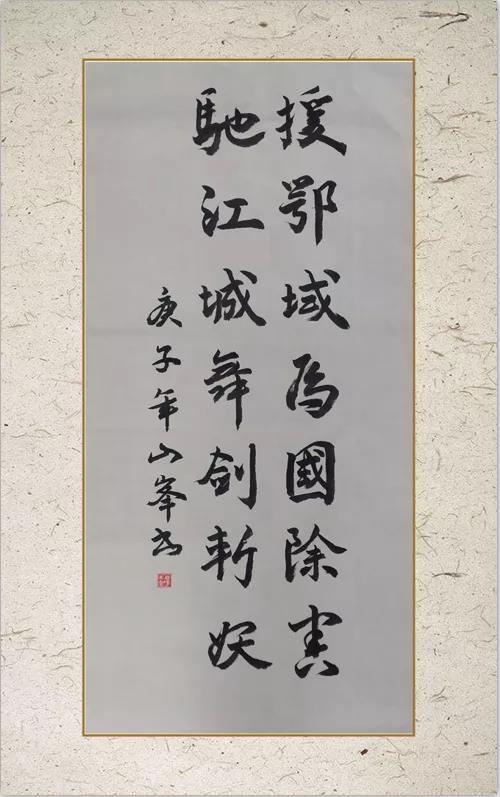 援鄂域為國除害
馳江城舞劍斬妖
庚子年山峯书